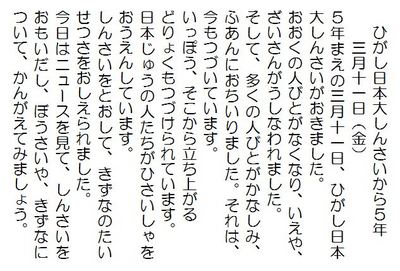 ひがし日本大しんさいから５年
三月十一日（金）
５年まえの三月十一日、ひがし日本
大しんさいがおきました。
おおくの人びとがなくなり、いえや、
ざいさんがうしなわれました。
そして、多くの人びとがかなしみ、
ふあんにおちいりました。それは、
今もつづいています。
いっぽう、そこから立ち上がる
どりょくもつづけられています。
日本じゅうの人たちがひさいしゃを
おうえんしています。
しんさいをとおして、きずなのたい
せつさをおしえられました。
今日はニュースを見て、しんさいを
おもいだし、ぼうさいや、きずなに
ついて、かんがえてみましょう。